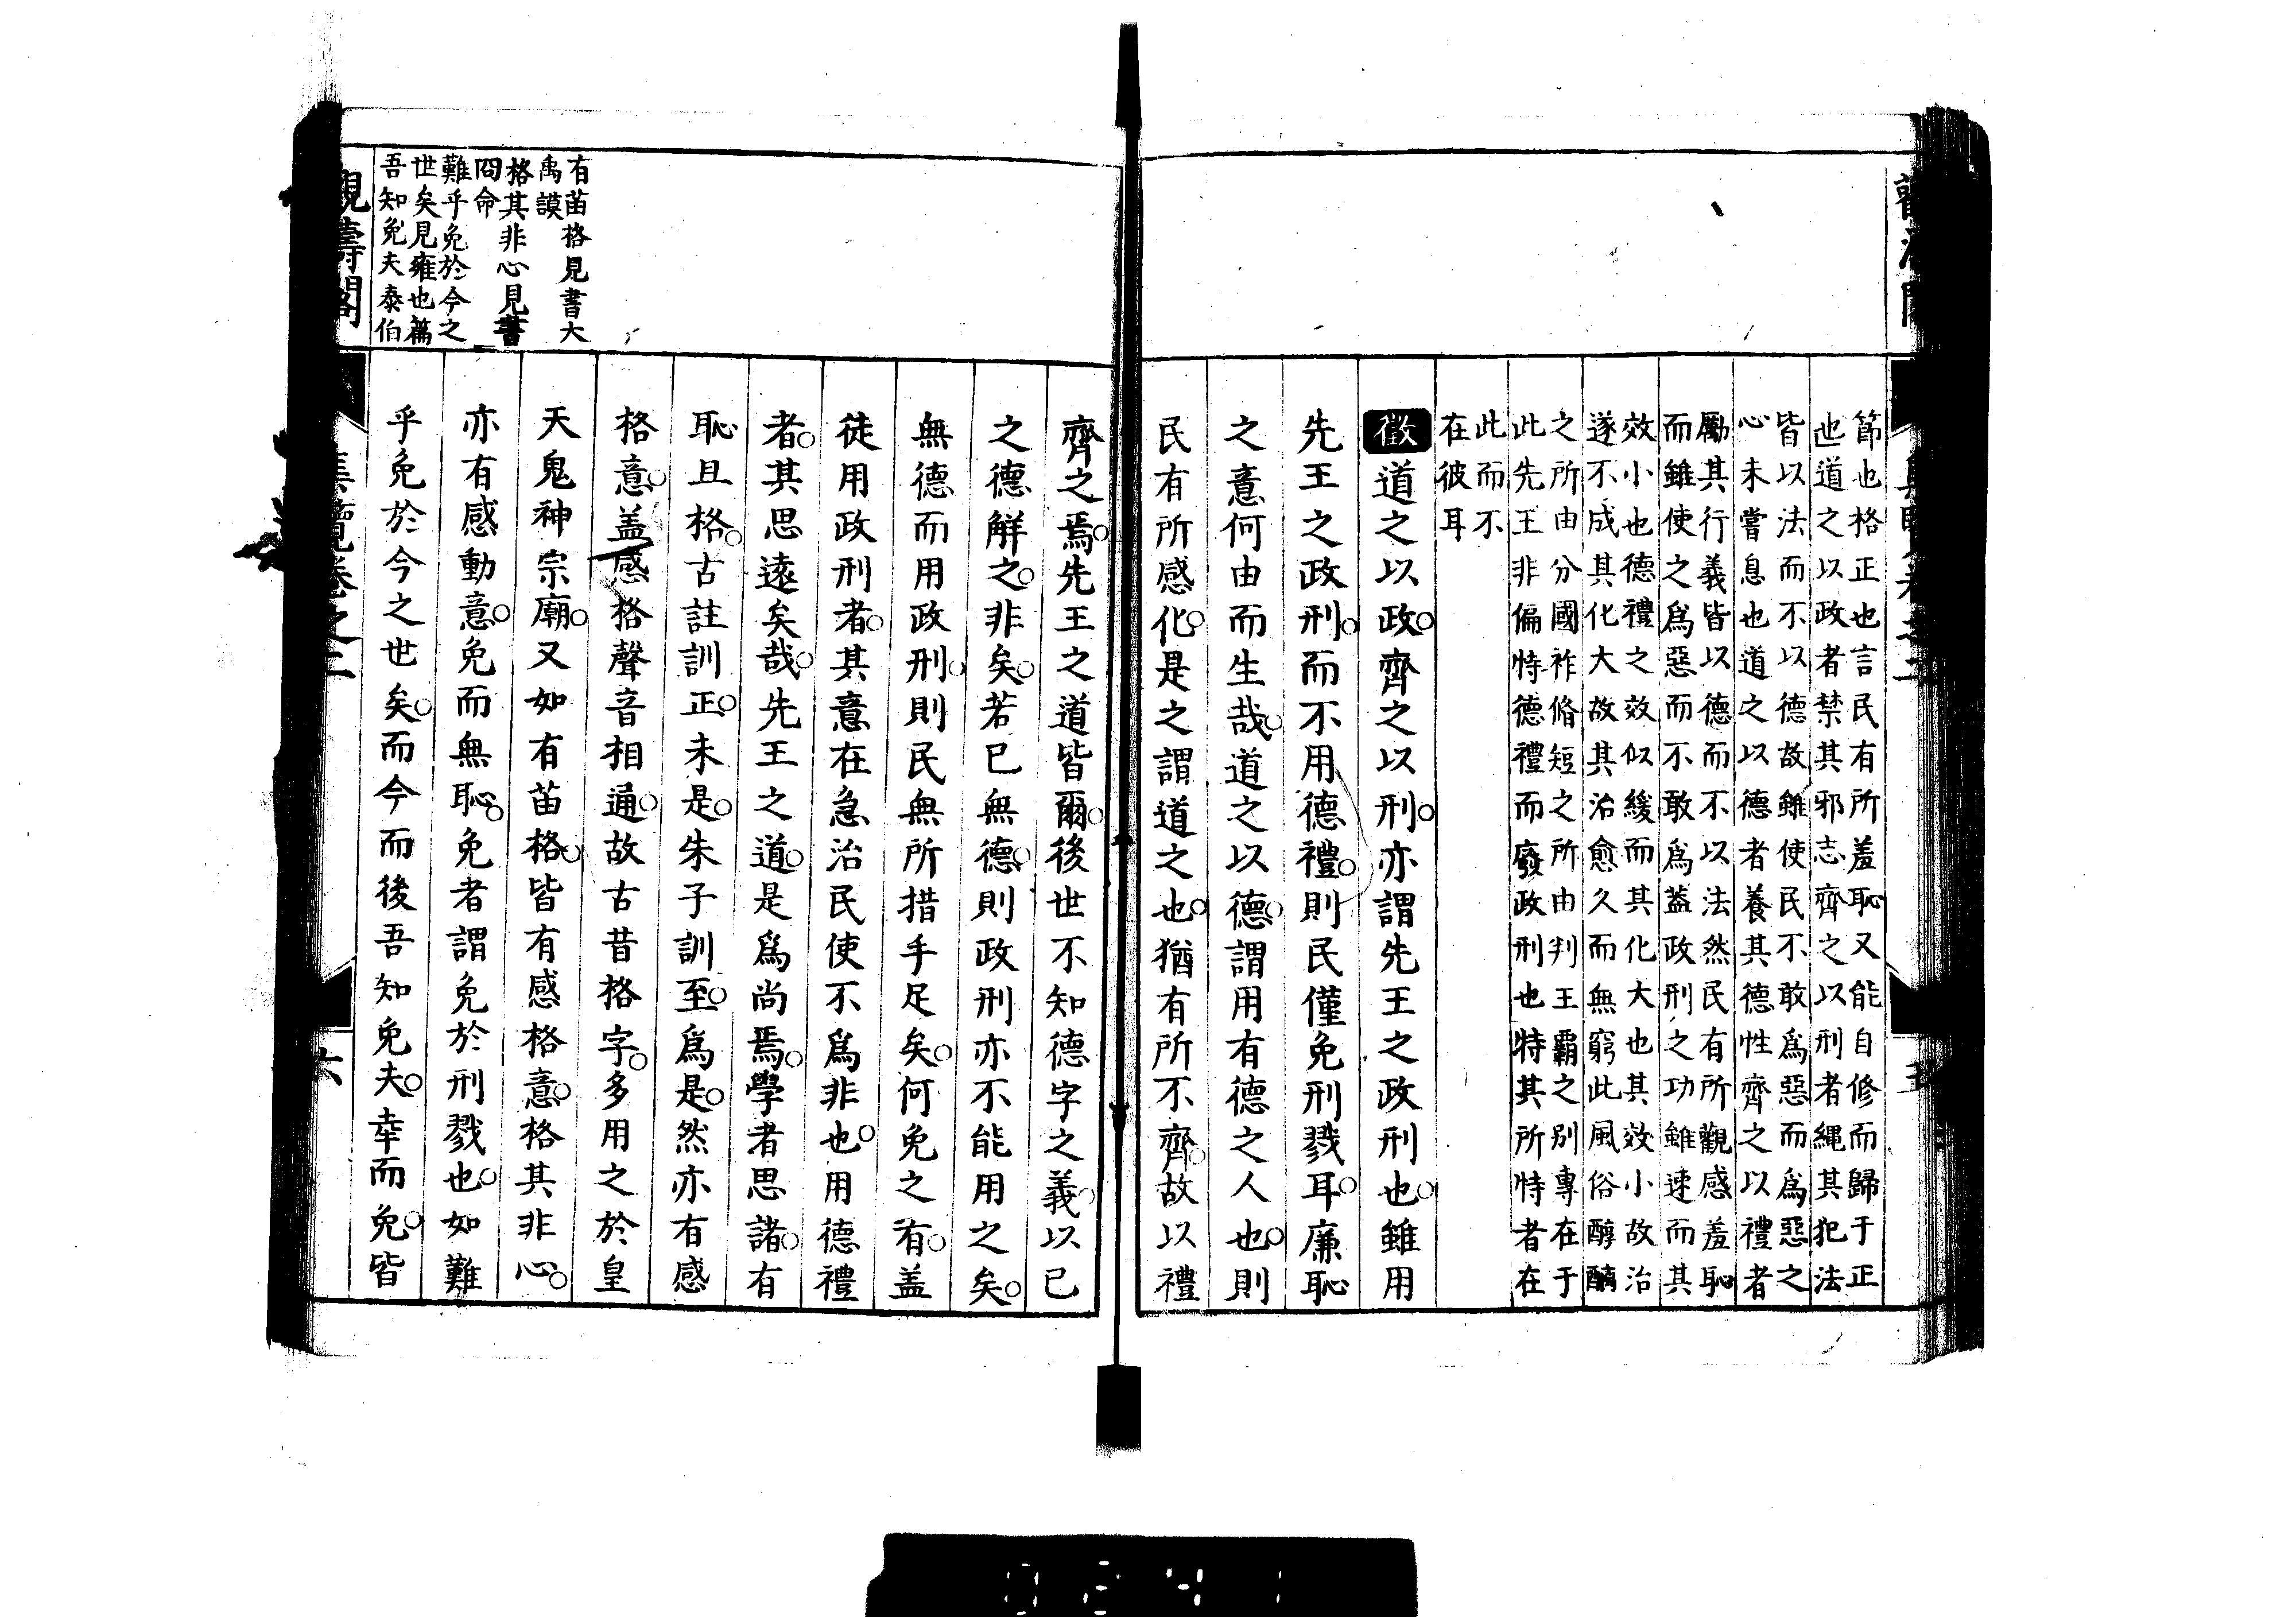 節也格正也言民有所羞恥又能自修而歸于正
也道之以政者禁其邪志齊之以刑者繩其犯法
皆以法而不以德故雖使民不敢爲惡而爲惡之
心未嘗息也道之以德者養其德性齊之以禮者
勵其行義皆以德而不以法然民有所觀感羞恥
而雖使之爲惡而不敢爲蓋政刑之功雖速而其
效小也德禮之效似緩而其化大也其效小故治
遂不成其化大故其治愈久而無窮此風俗醇醨
之所由分國祚脩短之所由判王霸之別專在于
此先王非偏恃德禮而廢政刑也特其所恃者在
此而不
在彼耳
徵道之以政○齊之以刑○亦謂先王之政刑也○雖用
先王之政刑○而不用德禮○則民僅免刑戮耳○廉恥
之意何由而生哉○道之以德○謂用有德之人也○則
民有所感化○是之謂道之也○猶有所不齊○故以禮
齊之焉○先王之道皆爾○後世不知德字之義○以已
之德解之○非矣○若已無德○則政刑亦不能用之矣○
無德而用政刑○則民無所措手足矣○何免之有○盖
徒用政刑者○其意在急治民使不爲非也○用德禮
者○其思遠矣哉○先王之道○是爲尚焉○學者思諸○有
恥且格○古註訓正○未是○朱子訓至○爲是○然亦有感
格意○盖感格聲音相通○故古昔格字○多用之於皇
天鬼神宗廟○又如有苗格○皆有感格意○格其非心○
亦有感動意○免而無恥○免者謂免於刑戮也○如難
乎免於今之世矣○而今而後吾知免夫○幸而免○皆
有苗格見書大
禹謨
格其非心見書
冏命
難乎免於今之
世矣見雍也篇
吾知免夫泰伯
觀濤閣
集覽卷之二
六